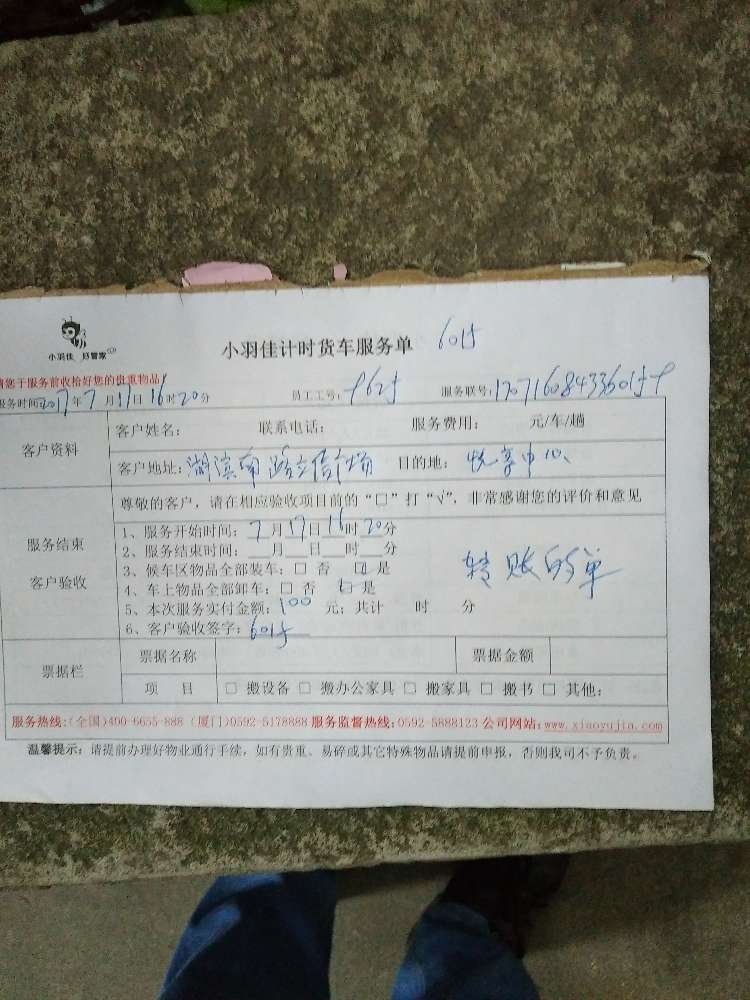 小羽佳 好管家
小羽佳计时货车服务单 6015
请您于服务前收拾好您的贵重物品!
服务时间:2017年7月17日16时20分 员工工号: 服务联号:
客户资料
客户姓名: 联系电话: 服务费用: 元/车/趟
客户地址:湖滨南路立信广场 目的地:悦享中心
服务结束
客户验收
尊敬的客户，请在相应验收项目前的“□”打“√”，非常感谢您的评价和意见
1、服务开始时间:7月17日16时20分
2、服务结束时间:__月__日__时__分
3、候车区物品全部装车:□ 否 ☑ 是
4、车上物品全部卸车:□ 否 ☑ 是
5、本次服务实付金额:100 元;共计 时 分
6、客户验收签字:6015
转账的单
票据栏
票据名称 票据金额
项 目 □ 搬设备 □ 搬办公家具 □ 搬家具 □ 搬书 □ 其他:
服务热线:(全国)400-6655-888 (厦门)0592-5178888 服务监督热线:0592-5888123 公司网站:www.xiaoyujia.com
温馨提示:请提前办理好物业通行手续，如有贵重、易碎或其它特殊物品请提前申报，否则我司不予负责。